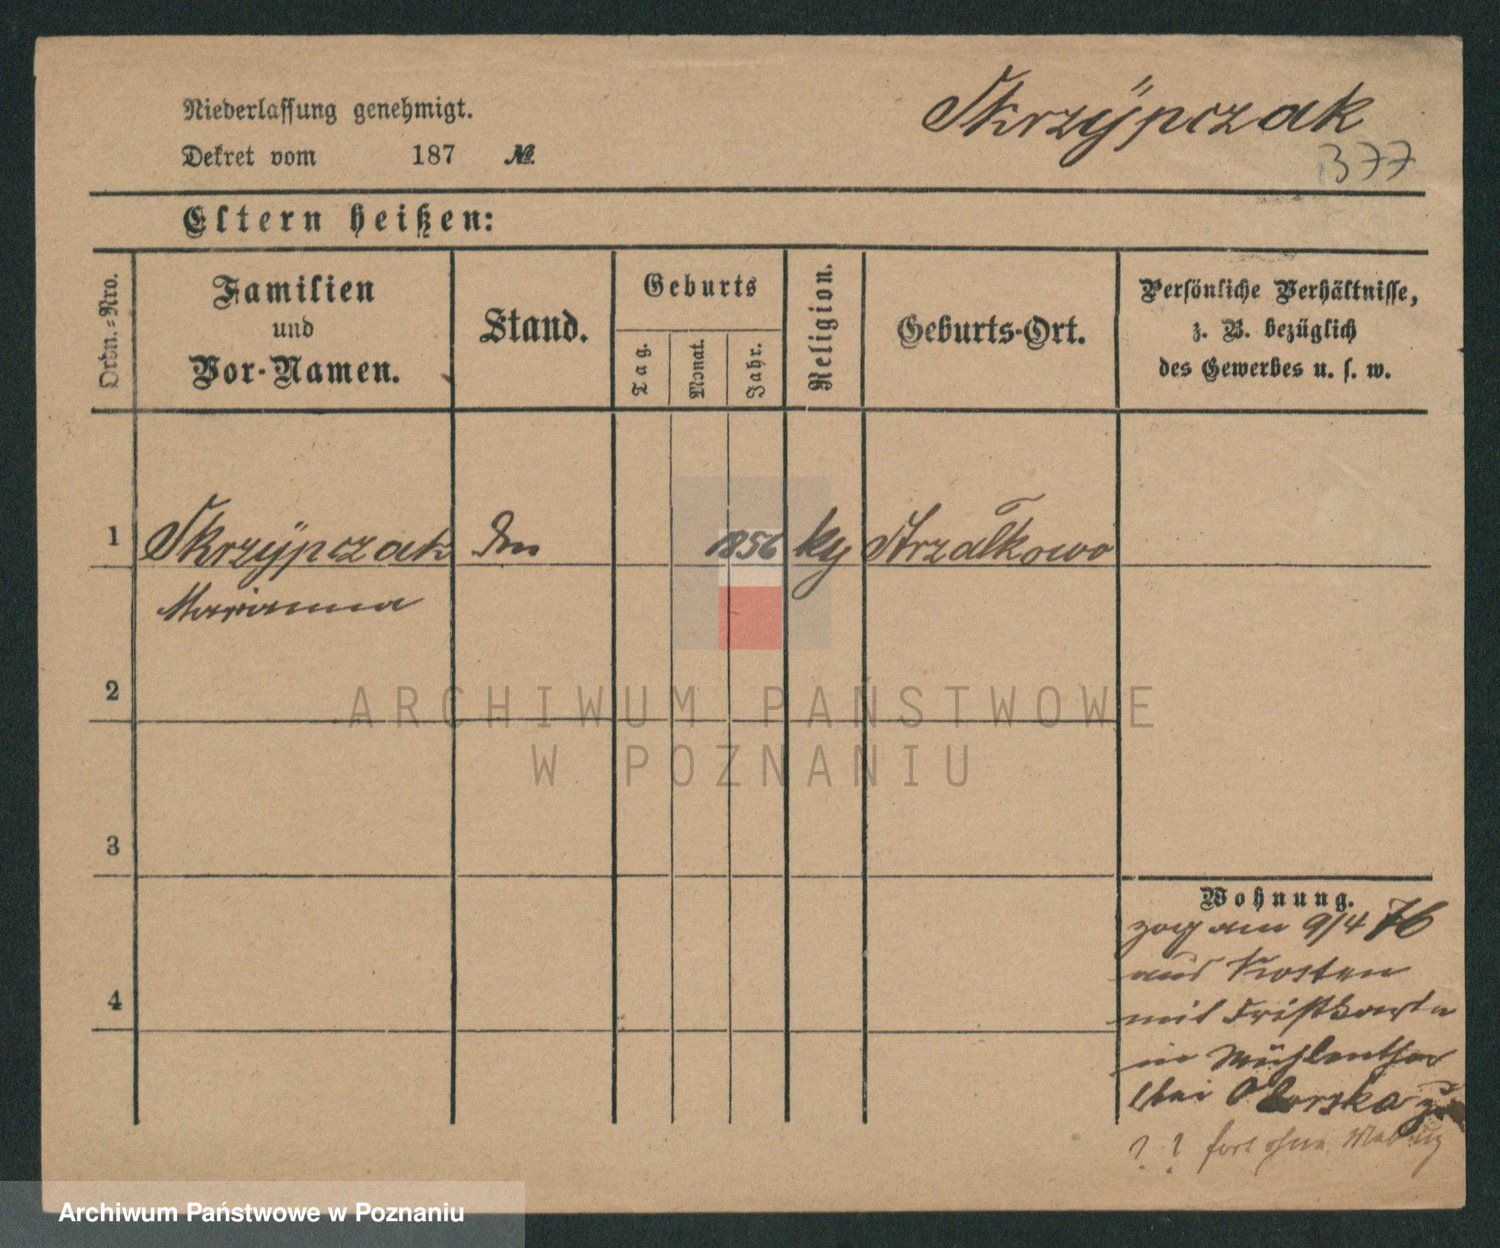 Niederlassung genehmigt.
Skrzÿpczak
Dekret vom 187 №
B 77
Eltern heißen:
Ordn.-Nro.
Familien
und
Vor-Namen.
Stand.
Geburts
Tag.
Monat.
Jahr.
Religion.
Geburts-Ort.
Persönliche Verhältnisse,
z. B. bezüglich
des Gewerbes u. s. w.
1 Skrzÿpczak 1856 Strzałkowo
Marianna
2
3
4
Wohnung.
zog am 9/4 76
aus Kosten
mit
in Mühlenthor
bei
? ? fort ohne Meldung
ARCHIWUM PAŃSTWOWE
W POZNANIU
Archiwum Państwowe w Poznaniu